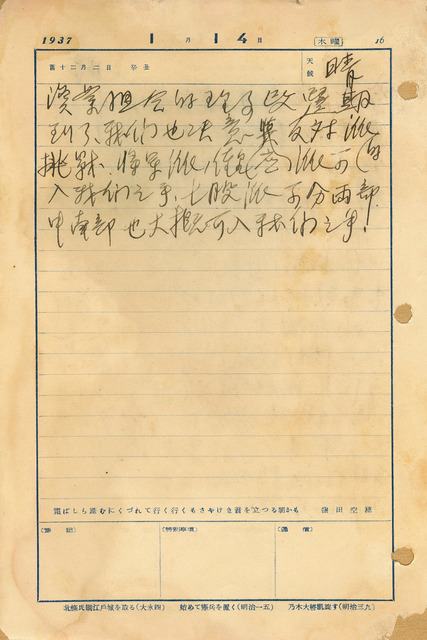 1937 1月14日 木曜 16
舊十二月二日 辛丑 天候 晴
資業組合的理事改選期
到了、我们也决意與反对派
挑戰、將軍派(信
入我们之手、七股派可分兩部
中南部也大概可入我们之手!
霜ばしら踏むにくづれて行く行くもさやけき音を立つる朝かも 窪田空穗
(發信)
(特別事項)
(受信)
北條氏綱江戸城を取る(大永四) 始めて憲兵を置く(明治一五) 乃木大將凱旋す(明治三九)